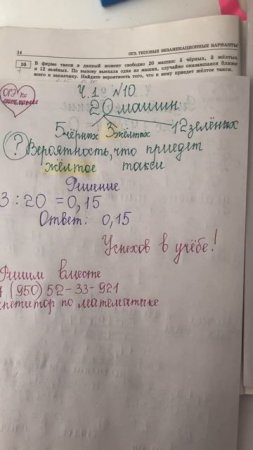 14
ОГЭ. ТИПОВЫЕ ЭКЗАМЕНАЦИОННЫЕ ВАРИАНТЫ
10 В фирме такси в данный момент свободно 20 машин: 5 чёрных, 3 жёлтых
и 12 зелёных. По вызову выехала одна из машин, случайно оказавшаяся ближе
всего к заказчику. Найдите вероятность того, что к нему приедет жёлтое такси.
ОГЭ по
математике
Ч.1 №10
20 машин
5 чёрных 3 жёлтых 12 зелёных
? Вероятность, что приедет
жёлтое такси
Решение
3 : 20 = 0,15
Ответ: 0,15
Успехов в учёбе!
Решим вместе
(950) 52-33-921
репетитор по математике